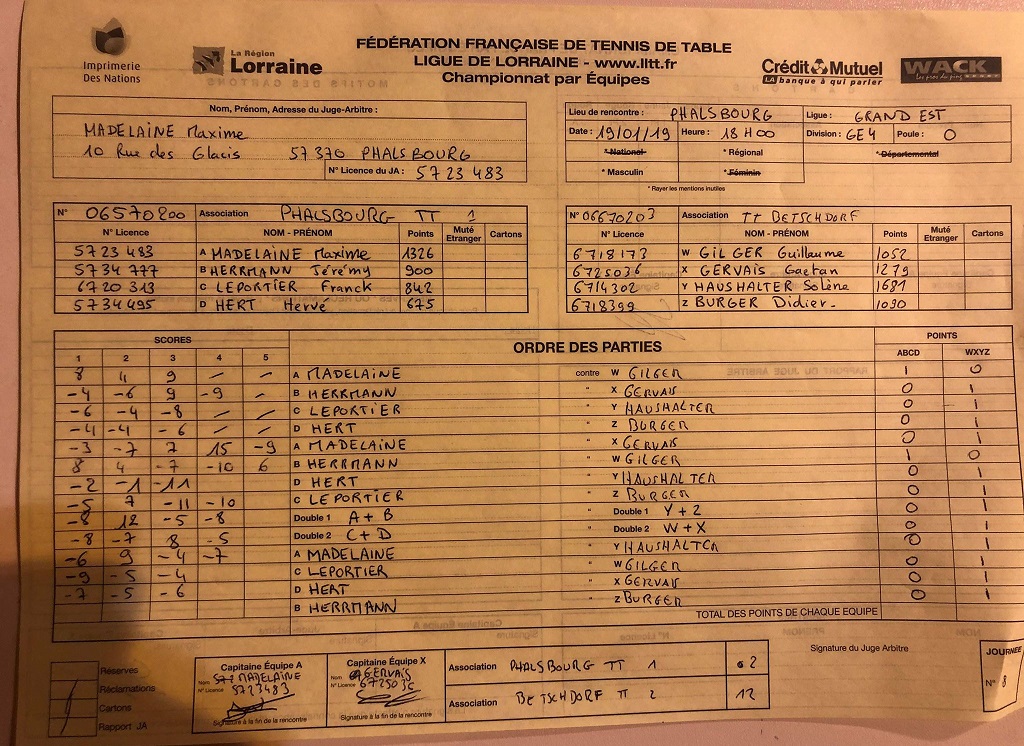 Imprimerie
Des Nations
La Région
Lorraine
FÉDÉRATION FRANÇAISE DE TENNIS DE TABLE
LIGUE DE LORRAINE - www.lltt.fr
Championnat par Équipes
Crédit Mutuel
LA banque à qui parler
WACK
SPORT
Nom, Prénom, Adresse du Juge-Arbitre :
MADELAINE Maxime
10 Rue des Glacis 57 370 PHALSBOURG
N° Licence du JA : 57 23 483
Lieu de rencontre : PHALSBOURG Ligue : GRAND EST
Date : 19/01/19 Heure : 18 H 00 Division : GE 4 Poule : O
* National * Régional * Départemental
* Masculin * Féminin
* Rayer les mentions inutiles
N° 06570200 Association PHALSBOURG TT 1
N° Licence NOM - PRÉNOM Points Muté Etranger Cartons
57 23 483 A MADELAINE Maxime 1326
57 34 777 B HERRMANN Jérémy 900
67 20 313 C LEPORTIER Franck 842
57 34 495 D HERT Hervé 675
N° 06670203 Association TT BETSCHDORF
N° Licence NOM - PRÉNOM Points Muté Etranger Cartons
6718173 W GILGER Guillaume 1052
6725036 X GERVAIS Gaetan 1279
6714302 Y HAUSHALTER Solène 1681
6718399 Z BURGER Didier 1090
SCORES ORDRE DES PARTIES POINTS
1 2 3 4 5 ABCD WXYZ
8 4 9 – – A MADELAINE contre W GILGER 1 0
-4 -6 9 -9 - B HERRMANN " X GERVAIS 0 1
-6 -4 -8 / / C LEPORTIER " Y HAUSHALTER 0 1
-4 -4 -6 / / D HERT " Z BURGER 0 1
-3 -7 7 15 -9 A MADELAINE " X GERVAIS 0 1
8 4 -7 -10 6 B HERRMANN " W GILGER 1 0
-2 -1 -11 D HERT " Y HAUSHALTER 0 1
-5 7 -11 -10 C LEPORTIER " Z BURGER 0 1
-8 12 -5 -8 Double 1 A + B " Double 1 Y + Z 0 1
-8 -7 8 -5 Double 2 C + D " Double 2 W + X 0 1
-6 9 -4 -7 A MADELAINE " Y HAUSHALTER 0 1
-9 -5 -4 C LEPORTIER " W GILGER 0 1
-7 -5 -6 D HERT " X GERVAIS 0 1
B HERRMANN " Z BURGER 0 1
TOTAL DES POINTS DE CHAQUE EQUIPE
Réserves
Réclamations
Cartons
Rapport JA
Capitaine Équipe A
Nom MADELAINE
N° Licence 5723483
Signature à la fin de la rencontre
Capitaine Équipe X
Nom GERVAIS
N° Licence 6725036
Signature à la fin de la rencontre
Association PHALSBOURG TT 1 2
Association BETSCHDORF TT 2 12
Signature du Juge Arbitre
JOURNEE
N° 8